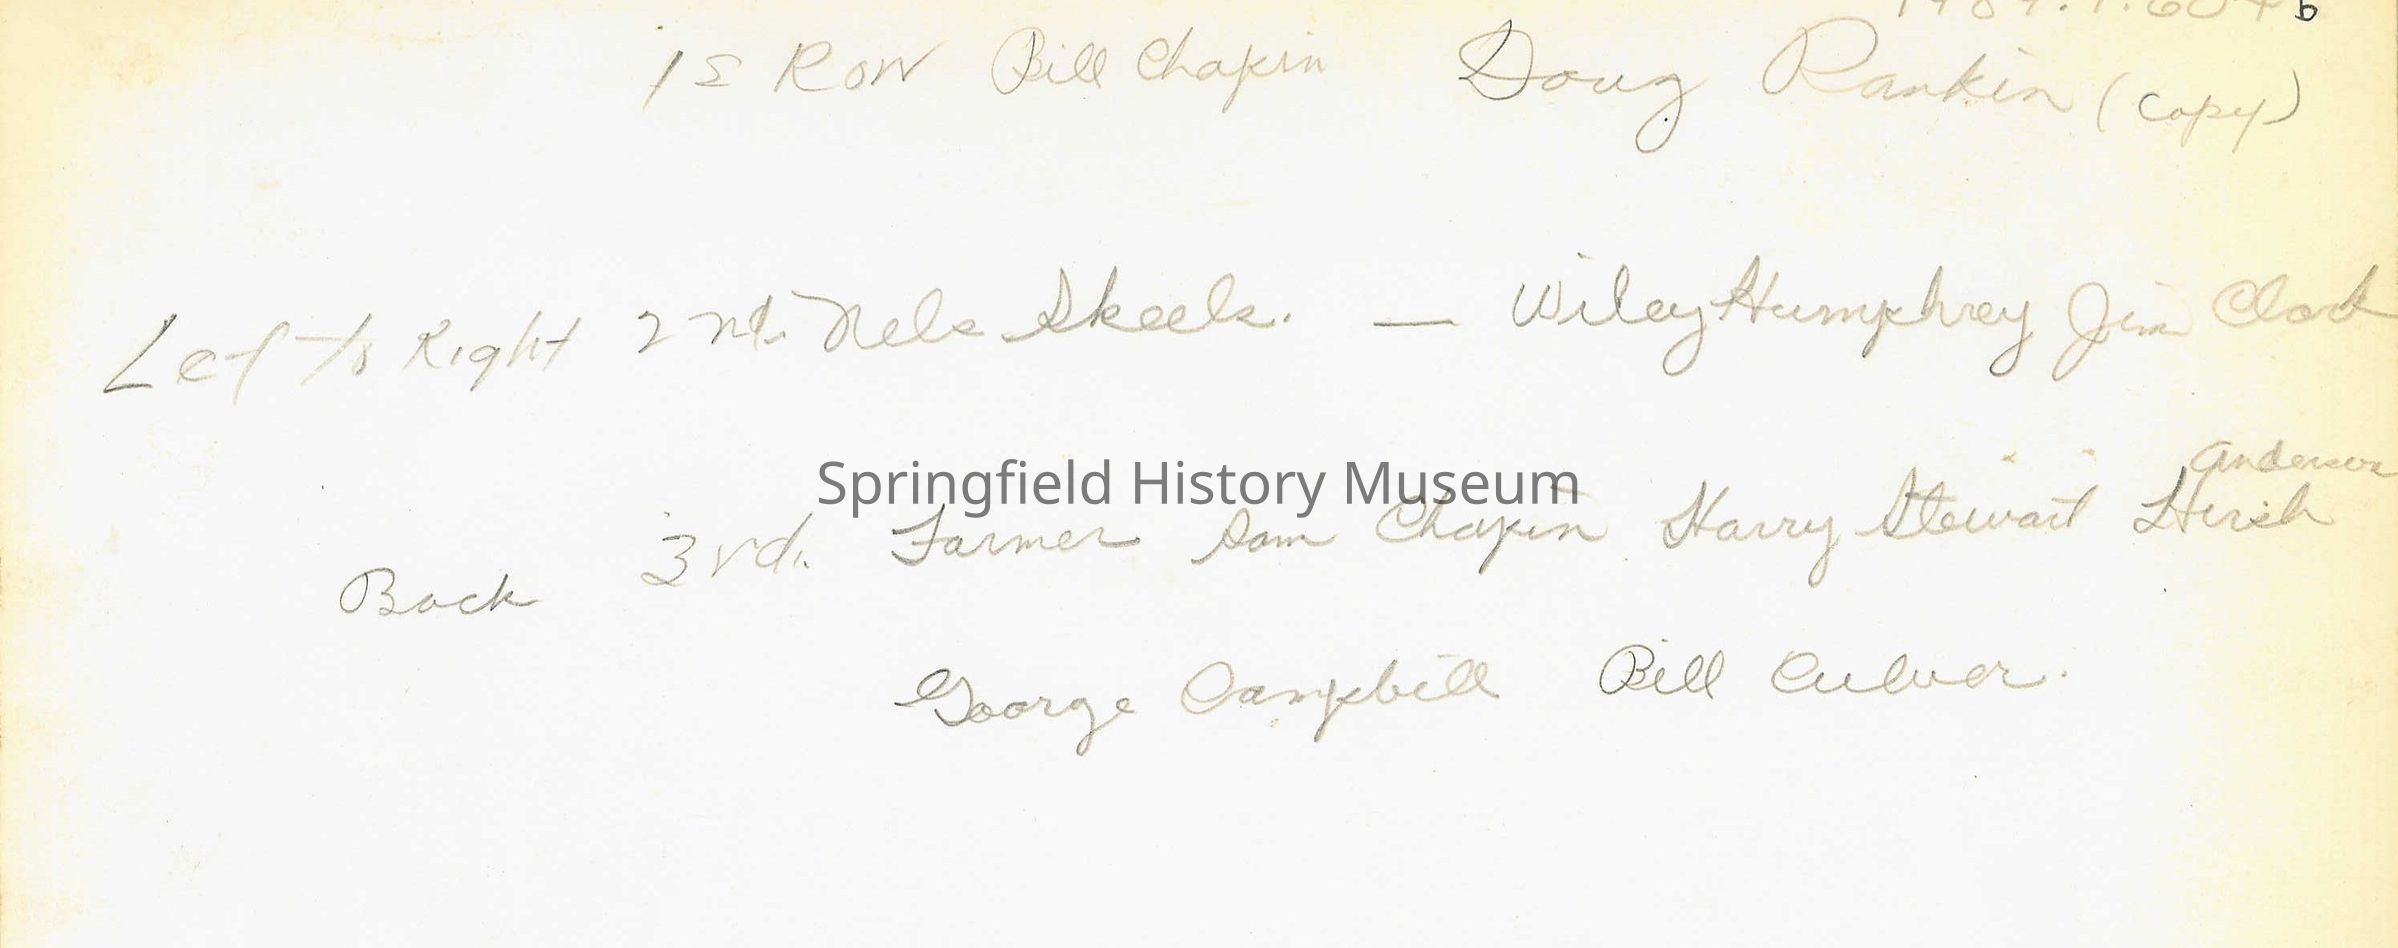 b
1s Row Bill Chapin Doug Rankin (copy)
Lef to Right 2nd. Nels Skeels. — Wiley Humphrey Jim Clark
Anderson
Springfield History Museum
Back 3rd. Farmer Sam Chapin Harry Stewart Hersh
George Campbell Bill Culver.